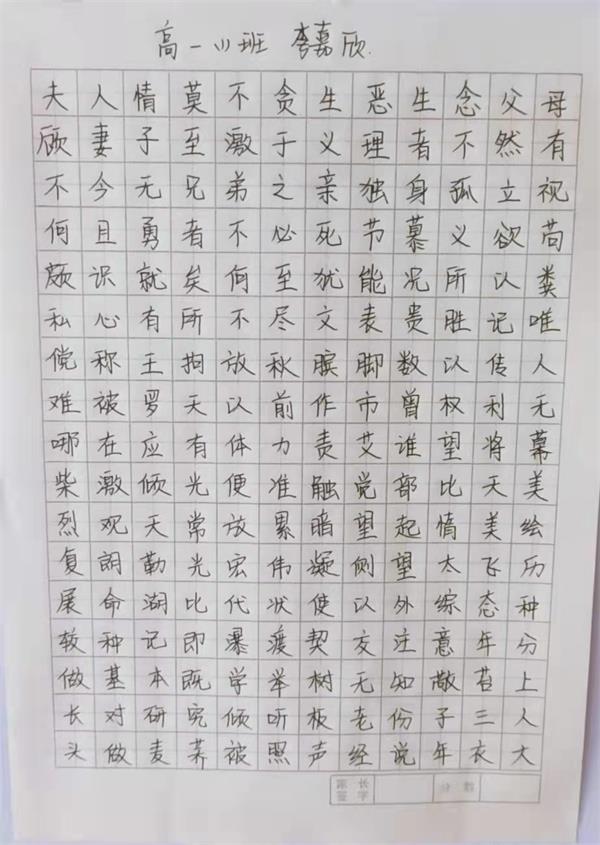 高一(1)班 李嘉欣.
夫人情莫不贪生恶生念父母
顾妻子至激于义理者不然有
不今无兄弟之亲独身孤立视
何且勇者不必死节慕义欲苟
颇识就矣何至犹能况所以粪
私心有所不尽文表贵胜记唯
傥称王拘放秋膑脚数以传人
难被罗天以前作市曾权利无
哪在应有体力责艾谁望将幕
柴激倾光便准触觉部比天美
烈观天常放累暗望起情美绘
复朗勒光宏伟凝侧望太飞历
展命湖比代状使以外综态种
较种记即瀑渡契友注意年分
做基本既学举树无知敞苔上
长对研究倾听板老份子三人
头做麦荞被照声经说年衣大
家长签字 分数